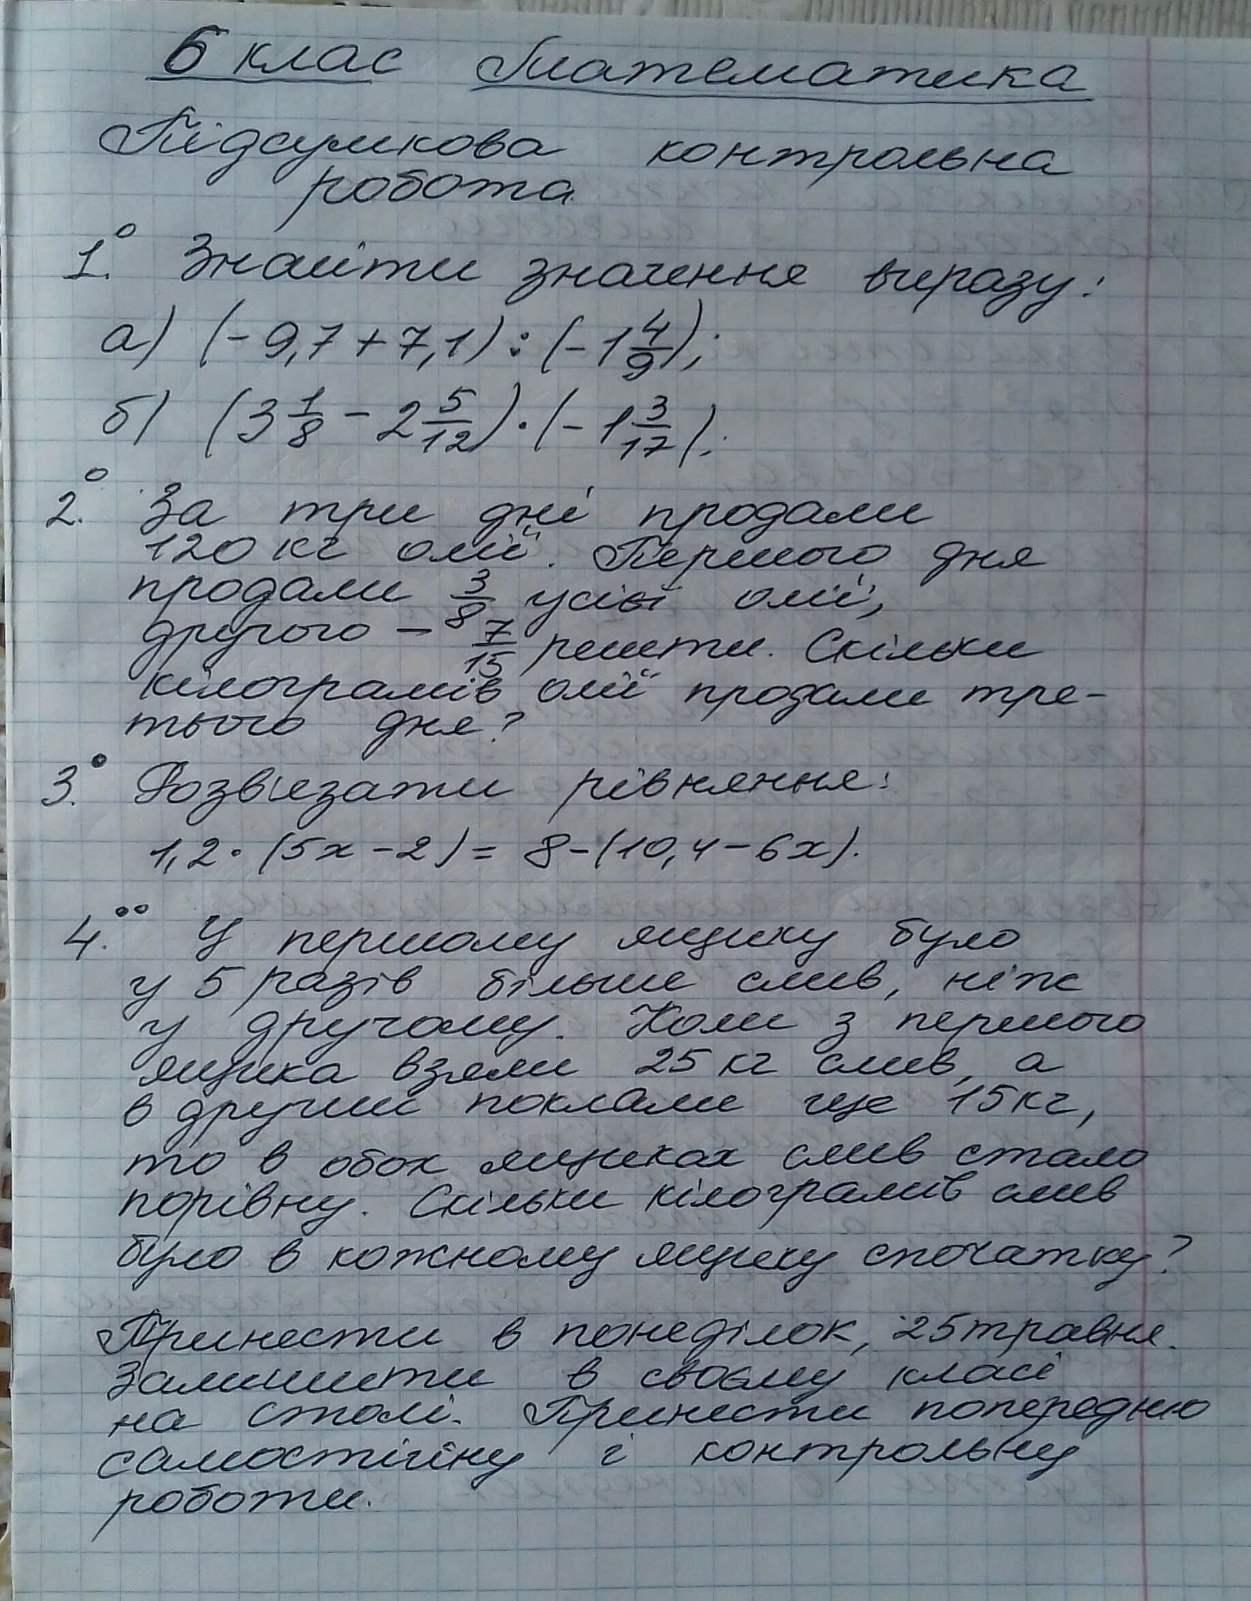 6 клас Математика
Підсумкова контрольна
робота.
1.° Знайти значення виразу:
а) (-9,7+7,1):(-1 4/9);
б) (3 1/8 - 2 5/12)·(-1 3/17).
2.° За три дні продали
120 кг олії. Першого дня
продали 3/8 усієї олії,
другого – 7/15 решти. Скільки
кілограмів олії продали тре-
тього дня?
3.° Розв'язати рівняння:
1,2·(5x-2)=8-(10,4-6x).
4.°° У першому ящику було
у 5 разів більше слив, ніж
у другому. Коли з першого
ящика взяли 25 кг слив, а
в другий поклали ще 15 кг,
то в обох ящиках слив стало
порівну. Скільки кілограмів слив
було в кожному ящику спочатку?
Принести в понеділок, 25 травня.
Залишити в своєму класі
на столі. Принести попередню
самостійну і контрольну
роботи.